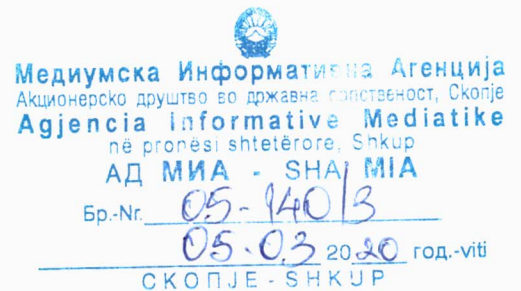 Медиумска Информативна Агенција
Акционерско друштво во државна сопственост, Скопје
Agjencia Informative Mediatike
në pronësi shtetërore, Shkup
АД МИА - SHA MIA
Бр.-Nr. 05-140/3
05.03 2020 год.-viti
СКОПЈЕ - SHKUP